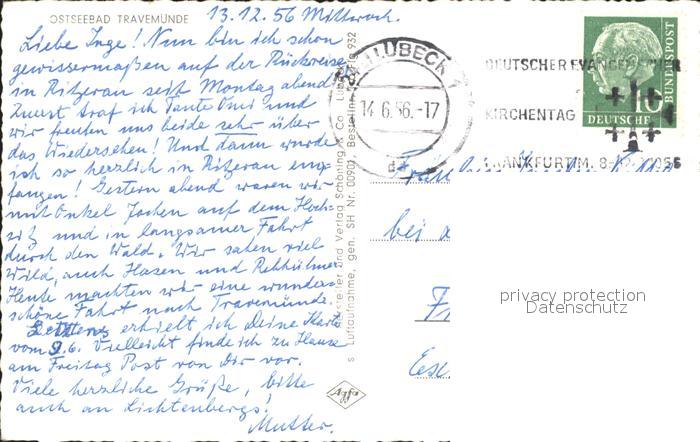 OSTSEEBAD TRAVEMÜNDE
13.12.56 Mittwoch.
Liebe Inge! Nun bin ich schon
gewissermaßen auf der Rückreise
in Ritzerau seit Montag abend
Zuerst traf ich Tante Omi und
wir freuten uns beide sehr über
das Wiedersehen! Und dann wurde
ich so herzlich in Ritzerau emp-
fangen! Gestern abend waren wir
mit Onkel Jochen auf dem Hoch-
sitz und in langsamer Fahrt
durch den Wald. Wir sahen viel
Wild, auch Hasen und Rebhühner
Heute machten wir eine wunder-
schöne Fahrt nach Travemünde.
Letztens erhielt ich Deine Karte
vom 9.6. Vielleicht finde ich zu Hause
am Freitag Post von Dir vor.
Viele herzliche Grüße, bitte
auch an Lichtenbergs!
Mutter.
Hersteller und Verlag Schöning & Co · Lübeck
Luftaufnahme, gen. SH Nr. 00901 Bestellnr. 932
Agfa
LÜBECK 1
14.6.56.-17
DEUTSCHER EVANGELISCHER
KIRCHENTAG
FRANKFURT M. 8-12. 1956
10
DEUTSCHE
BUNDESPOST
bei
privacy protection
Datenschutz